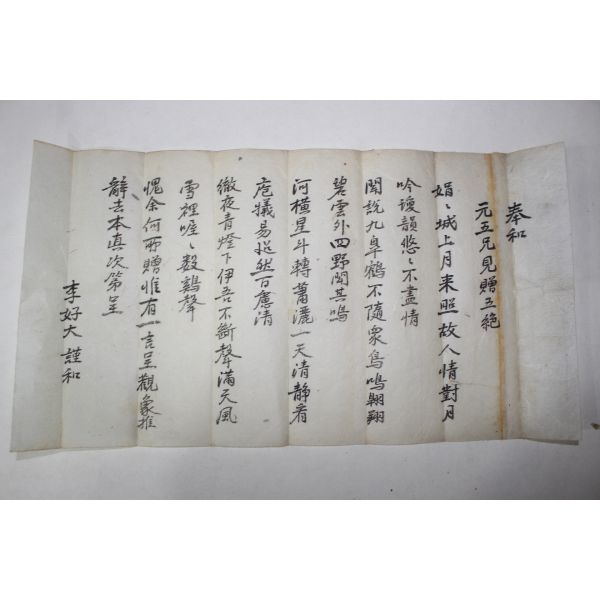 奉和
元五兄見贈五絶
娟〻城上月来照故人情對月
吟瓊韻悠〻不盡情
聞說九皐鶴不隨衆鳥鳴翱翔
碧雲外四野聞其鳴
河橫星斗轉蕭灑一天清靜看
庖犧易悠然百慮清
徹夜青燈下伊吾不斷聲滿天風
雪裡喔〻數鷄聲
愧余何所贈惟有一言呈觀象推
辭去本眞次第呈
李好大謹和